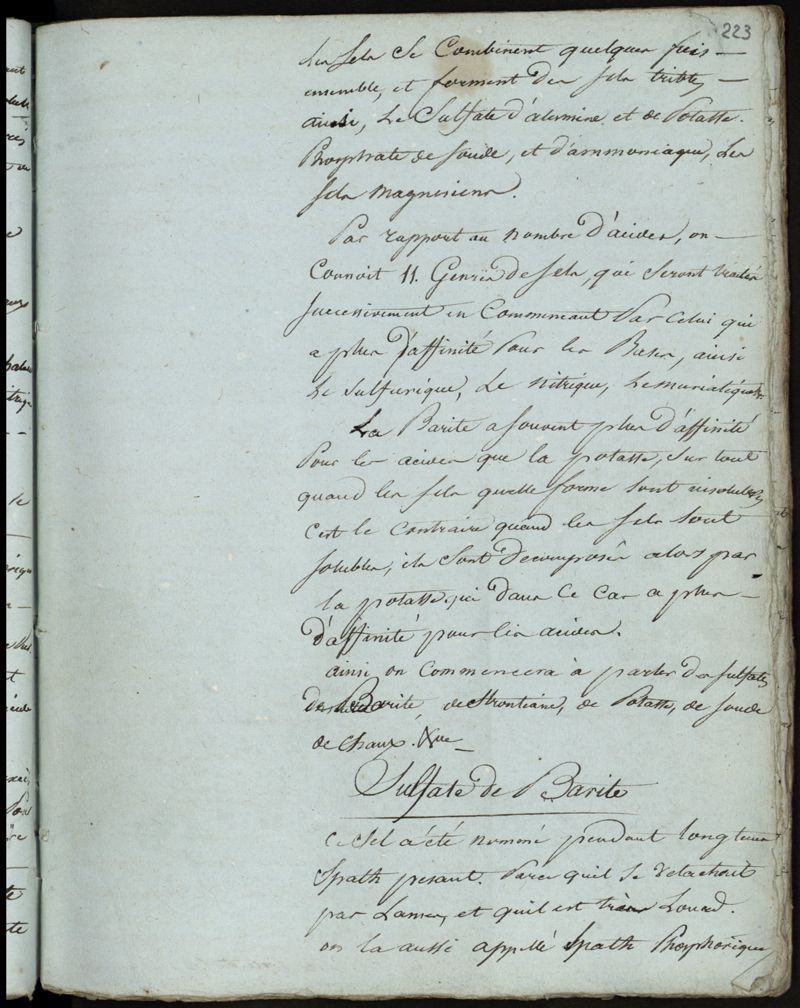 223
Les sels se combinent quelques fois
ensemble, et forment des sels tribles
ainsi, le Sulfate d'alumine et de Potasse.
Phosphate de soude, et d'ammoniaque, les
sels magnesiens.
Par rapport au nombre d'acides, on
Connoit 11. Genres de sels, qui seront traités
successivement en Commencant Par celui qui
a plus d'affinité Pour les Bases, ainsi
le sulfurique, le nitrique, le muriatique
La Barite a souvent plus d'affinité
Pour les acides que la potasse, sur tout
quand les sels quelle forme sont insolubles
c'est le contraire quand les sels sont
solubles, ils sont decomposés alors par
la potasse qui dans ce cas a plus
d'affinité pour les acides.
ainsi on commencera à parler des sulfates
de Barite, de strontiane, de Potasse, de soude
de chaux.
Sulfate de Barite
ce sel a été nommé pendant longtems
Spath pesant. Parce quil se detachoit
par Lames, et quil est très Lourd.
on la aussi appellé Spath Phosphorique